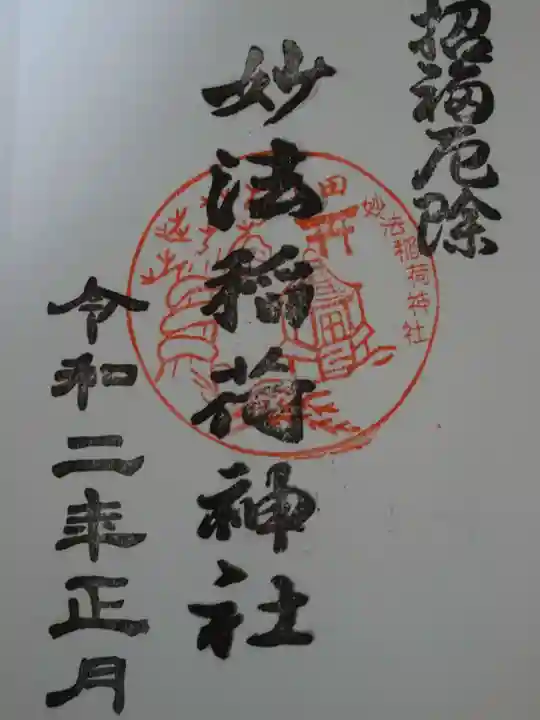 招福厄除
妙法稲荷神社
令和二年正月
妙法稲荷神社